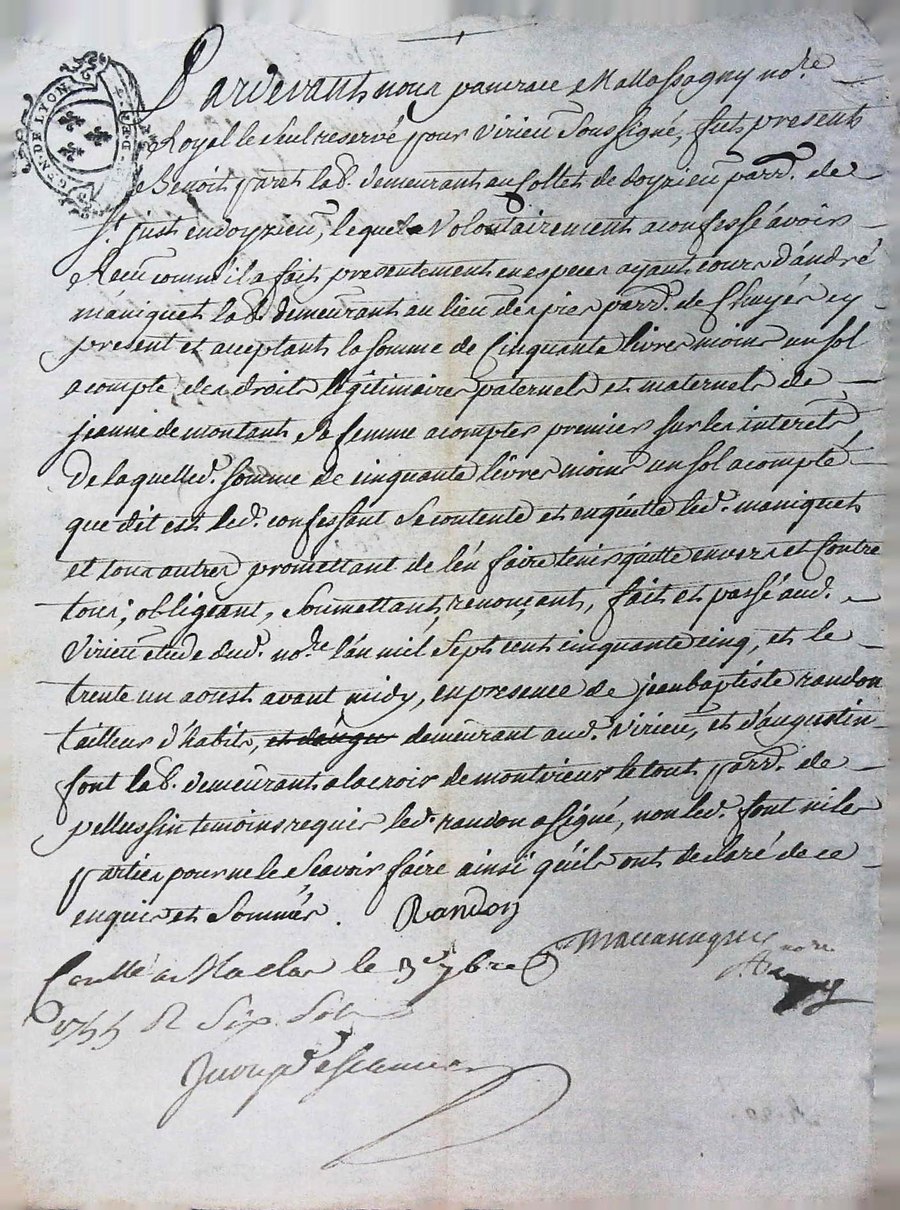 GEN. DE LYON
Pardevant nous pancrace Mallassagny no.re
Royal le seul reservé pour Virieu soussigné, fut present
Benoit paret lab.r demeurant au Collet de doyzieu parr.e de
S.t just en doyzieu, lequel Volontairement a confessé avoir
Receu comm'il a fait presentement en especes ayant cours d'andré
maniquet lab.r demeurant au lieu de parr.e de Chuyér cy
present et acceptant la somme de Cinquante livres moins un sol
a compte des droits légitimaires paternels et maternels de
jeanne demontant sa femme a comptes premier sur les interets
De laquelle d. somme de cinquante livres moins un sol a compte
que dit est led. confessant se contente et en quitte led. maniquet
et tous autres promettant de l'en faire tenir quitte envers et contre
tous; obligeant, soumettant, renonçant, fait et passé aud.
Virieu etude dud. no.re l'an mil sept cent cinquante cinq, et le
trente un aoust avant midy, en presence de jean baptiste randon
tailleur d'habits, demeurant aud. Virieu, et d'augustin
font lab.r demeurant a la crois de montvieux le tout parr.e de
pellussin temoins requis led. randon a signé, non led. font ni les
parties pour ne le scavoir faire ainsi qu'ils ont declaré de ce
enquis et sommés. Randon
no.re
Con.llé a Maclas le 3.e 7bre
1755 R six sols